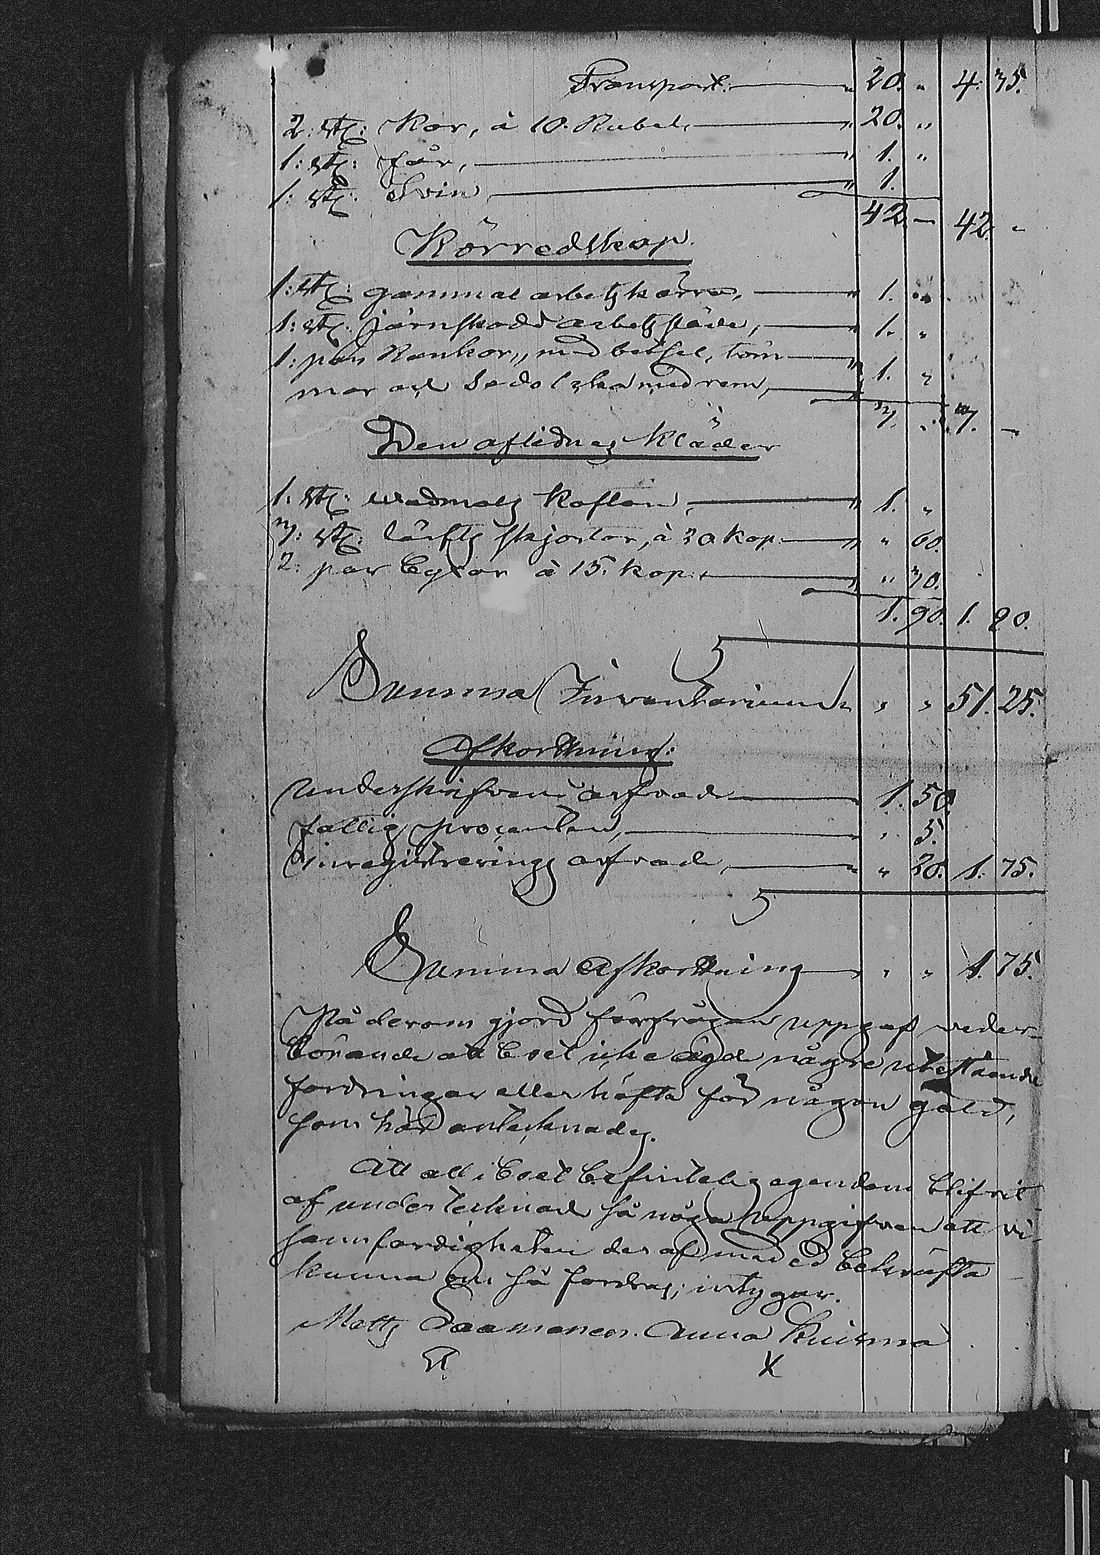 Transport. — " 20. " 4. 75.
2: st: Kor, à 10. Rubel, — " 20. "
1: st: får, — " 1. "
1: st: Svin — " 1.
42 — 42. -
Körredskap.
1: st: gammal arbetskärra, — " 1. "
1: st: järnskodd arbetssläde, — " 1. "
1: par Rankor, med betsel, töm
mar och Sedolka med rem, — " 1. "
3. " 3. —
Den aflidnes Kläder
1. st: wadmals Kaftan, — " 1. "
3: st: lärfts skjortor, à 20 kop. — " " 60.
2: par Byxor à 15. kop: — " " 30.
1. 90. 1. 90.
Summa Inventarium " " 51. 25.
Afkortning:
Underskrifvens arfvode — 1. 50.
fattig procenten, — " 5.
Inregistrerings arfvode, — " 20. 1. 75.
Summa Afkortning " " 1. 75.
På derom gjord förfrågan uppgaf veder-
börande att boet icke ägde några utestående
fordringar eller häfta för någon gäld,
som här antecknades.
Att all i boet befintelig egendom blifvit
af undertecknade så noga uppgifven att vi
sannfärdigheten deraf med ed bekräfta
kunna om så fordras; intygar.
Matts Saamanen. Anna Kuisma
X